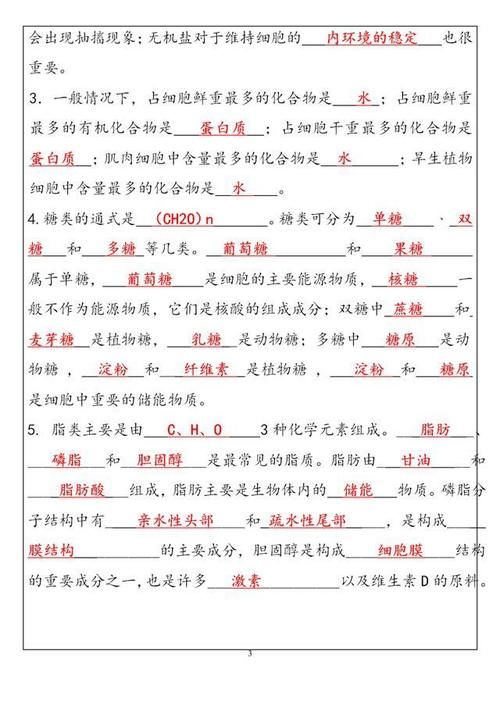 会出现抽搐现象；无机盐对于维持细胞的 内环境的稳定 也很
重要。
3．一般情况下，占细胞鲜重最多的化合物是 水 ；占细胞鲜重
最多的有机化合物是 蛋白质 ；占细胞干重最多的化合物是
蛋白质 ；肌肉细胞中含量最多的化合物是 水 ；旱生植物
细胞中含量最多的化合物是 水 。
4.糖类的通式是 (CH2O)n 。糖类可分为 单糖 、双
糖 和 多糖 等几类。 葡萄糖 和 果糖
属于单糖， 葡萄糖 是细胞的主要能源物质， 核糖 一
般不作为能源物质，它们是核酸的组成成分；双糖中 蔗糖 和
麦芽糖 是植物糖， 乳糖 是动物糖；多糖中 糖原 是动
物糖 ， 淀粉 和 纤维素 是植物糖 ， 淀粉 和 糖原
是细胞中重要的储能物质。
5. 脂类主要是由 C、H、O 3 种化学元素组成。 脂肪 、
磷脂 和 胆固醇 是最常见的脂质。脂肪由 甘油 和
脂肪酸 组成，脂肪主要是生物体内的 储能 物质。磷脂分
子结构中有 亲水性头部 和 疏水性尾部 ，是构成
膜结构 的主要成分，胆固醇是构成 细胞膜 结构
的重要成分之一,也是许多 激素 以及维生素 D 的原料。
3